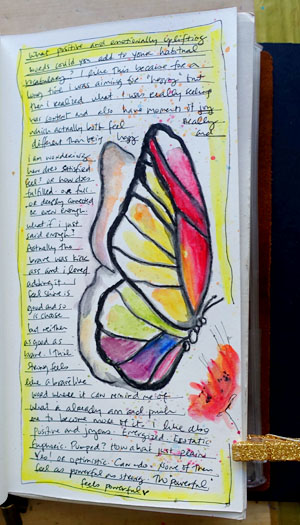 What positive and emotionally uplifting
words could you add to your habitual
vocabulary? I like this because for a
long time I was aiming for "happy" but
then I realized what I was really feeling
was content and also have moments of joy
which actually both feel really
different than being happy and
I am wondering
how does satisfied
feel? or how does
fulfilled or full
or deeply connected
or even enough.
what if i just
said enough?
Actually the
brave was kick
ass and i loved
adding it
feel shine is
good and so
is choose
but neither
as good as
brave. I think
strong feels
like a brave like
word where it can remind me of
what I already am and push
me to become more of it. I like also
positive and joyous. Energized. Ecstatic.
Euphoric. Pumped? How about just plain
Yes! or optimistic. Can do. None of them
feel as powerful as strong. Tho powerful
feels powerful